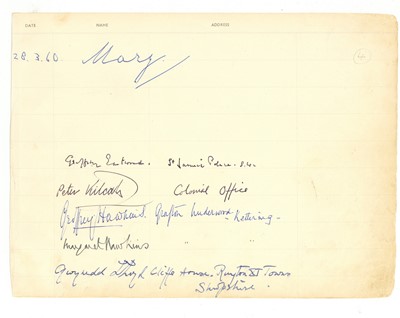 DATE NAME ADDRESS
28.3.60 Mary 4
Geoffrey Eastwood. St James's Palace. S.W.
Peter Colonial Office
Geoffrey Hawkins. Grafton Underwood - Kettering -
Margaret Hawkins " "
Cliffe House. Ruyton XI Towns
Shropshire.